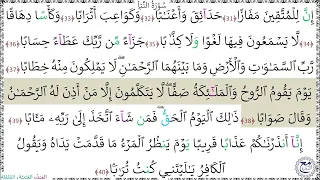 سُورَةُ النَّبَإِ
إِنَّ لِلْمُتَّقِينَ مَفَازًا (31) حَدَآئِقَ وَأَعْنَٰبًا (32) وَكَوَاعِبَ أَتْرَابًا (33) وَكَأْسًا دِهَاقًا
(34) لَّا يَسْمَعُونَ فِيهَا لَغْوًا وَلَا كِذَّٰبًا (35) جَزَآءً مِّن رَّبِّكَ عَطَآءً حِسَابًا (36)
رَّبِّ السَّمَٰوَٰتِ وَالْأَرْضِ وَمَا بَيْنَهُمَا الرَّحْمَٰنِ لَا يَمْلِكُونَ مِنْهُ خِطَابًا (37)
يَوْمَ يَقُومُ الرُّوحُ وَالْمَلَٰٓئِكَةُ صَفًّا لَّا يَتَكَلَّمُونَ إِلَّا مَنْ أَذِنَ لَهُ الرَّحْمَٰنُ
وَقَالَ صَوَابًا (38) ذَٰلِكَ الْيَوْمُ الْحَقُّ فَمَن شَآءَ اتَّخَذَ إِلَىٰ رَبِّهِ مَـَٔابًا (39)
إِنَّآ أَنذَرْنَٰكُمْ عَذَابًا قَرِيبًا يَوْمَ يَنظُرُ الْمَرْءُ مَا قَدَّمَتْ يَدَاهُ وَيَقُولُ
الْكَافِرُ يَٰلَيْتَنِي كُنتُ تُرَٰبًا (40)